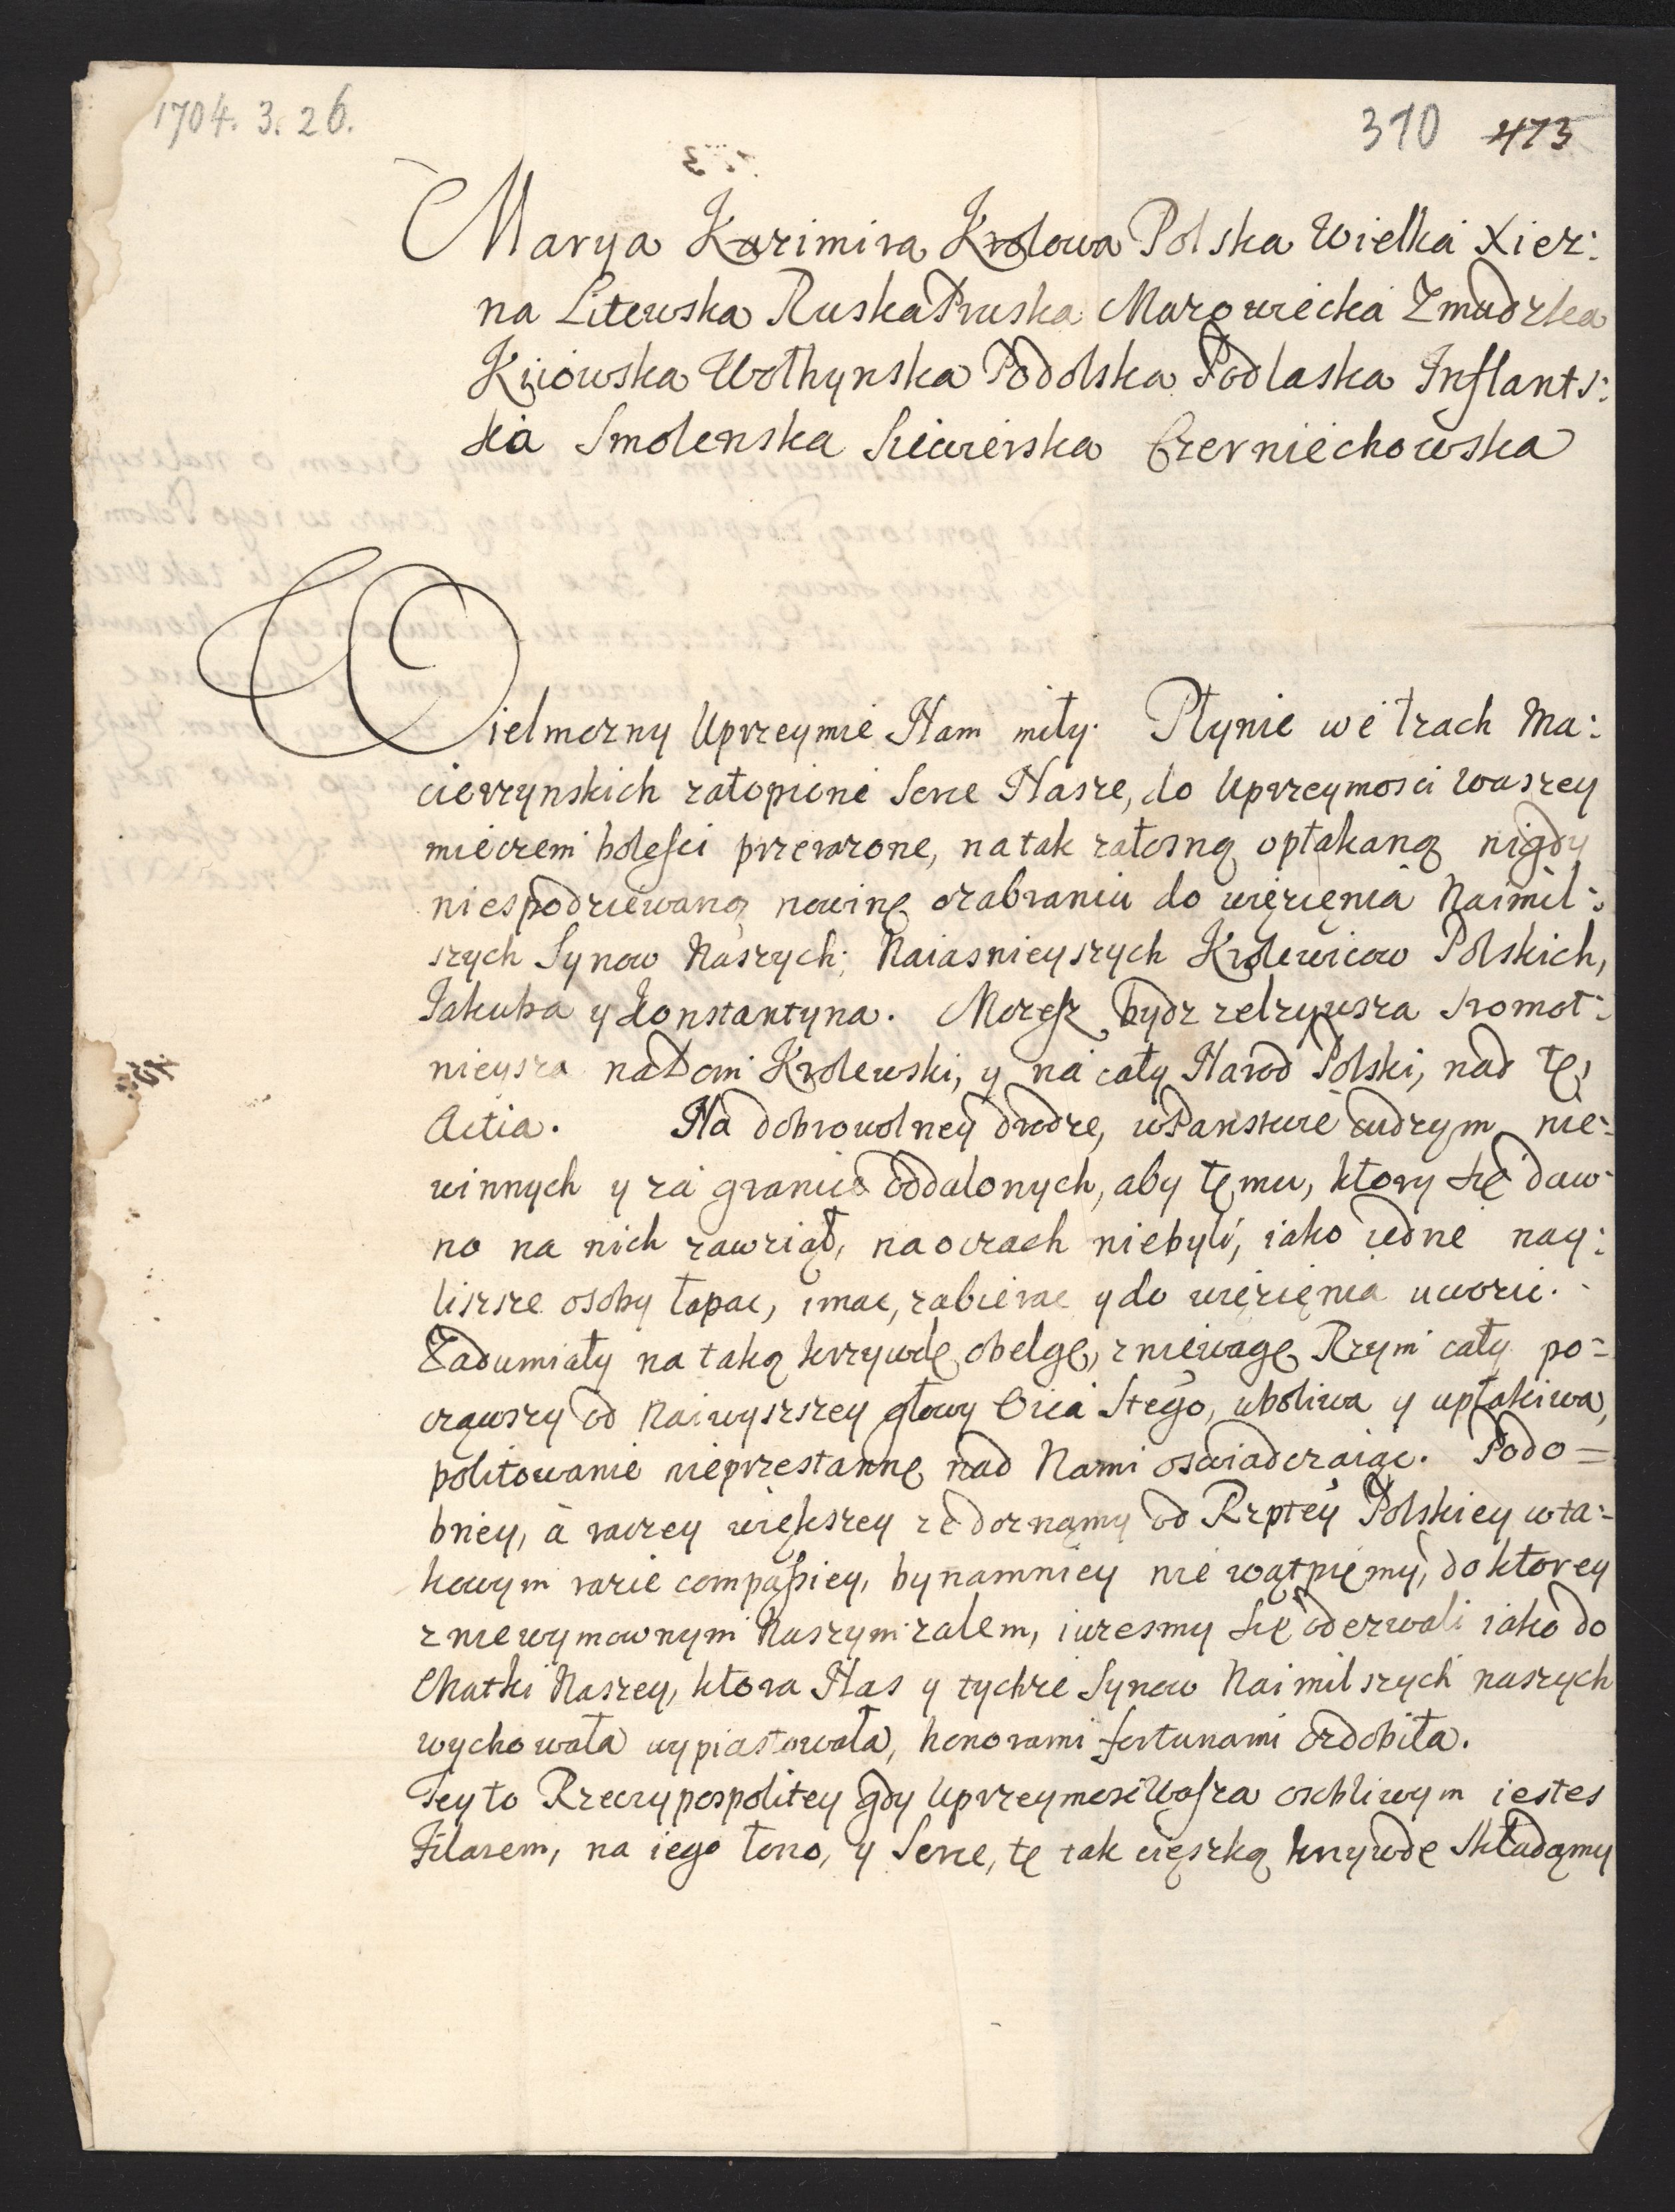 1704. 3. 26.
310 473
Marya Kazimira Krolowa Polska Wielka Xięz:
na Litewska Ruska Pruska Mazowiecka Zmudzka
Kijowska Wołhynska Podolska Podlaska Inflants:
ka Smolenska Siewierska Czerniechowska
Wielmozny Uprzeymie Nam miły. Płynie we łzach Ma:
cierzynskich zatopione Serce Nasze, do Uprzeymosci Waszey
mieczem boleſci przerazone, na tak załosną opłakaną nigdy
niespodziewaną nowinę ozabraniu do więzięnia Naimil:
szych Synow Naszych; Naiasnieyszych Krolewicow Polskich,
Jakuba y Konstantyna. Mozeſz bydz zelzywsza sromot:
nieysza na Dom Krolewski, y na cały Narod Polski, nad tę,
Actia. Na dobrowolney drodze, w Panstwie cudzym nie:
winnych y za granicą oddalonych, aby tęmu, ktory się daw:
no na nich zawziął, na oczach niebyli, iako iedne nay:
liszsze osoby łapac, imac, zabierac y do więzięnia uwozic.
Zadumiały na taką krzywdę obelgę, zniewagę Rzym cały po=
cząwszy od Naiwyszszey głowy Oica Stego, uboliwa y upłakiwa,
politowanie nieprzestanne nad Nami oswiadczaiąc. Podo=
bney, a raczey większey ze doznamy od Rzptey Polskiey w ta:
kowym razie compaſsiey, bynamniey nie wątpięmy, do ktorey
z niewymownym Naszym zalem, iuzesmy się oderwali iako do
Matki Naszey, ktora Nas y tychze Synow Naimilszych naszych
wychowała wypiastowała, honorami fortunami ozdobiła.
Tey to Rzeczypospolitey gdy Uprzeymosc Waſza osobliwym iestes
Filarem, na iego łono, y Serce, tę tak cięszką krzywdę składamy